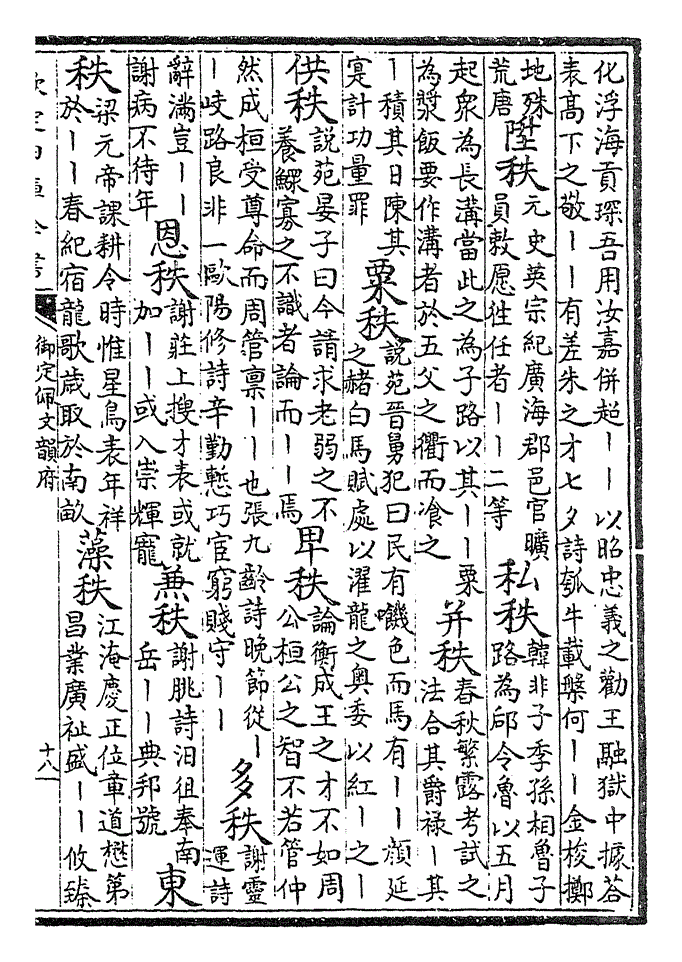 化浮海貢琛吾用汝嘉併超丨丨以昭忠義之勸王融獄中據荅
表高下之敬丨丨有差朱之才七夕詩瓠牛載槃何丨丨金梭擲
地殊
荒唐
陞秩
元史英宗紀廣海郡邑官曠
員敕愿徃任者丨丨二等
私秩
韓非子季孫相魯子
路為郈令魯以五月
起衆為長溝當此之為子路以其丨丨粟
為漿飯要作溝者於五父之衢而飡之
并秩
春秋繁露考試之
法合其爵禄丨其
丨積其日陳其
寔計功量罪
粟秩
説苑晉舅犯曰民有饑色而馬有丨丨顔延
之赭白馬賦處以濯龍之奥委以紅丨之丨
供秩
説苑晏子曰今請求老弱之不
養鰥寡之不識者論而丨丨焉
卑秩
論衡成王之才不如周
公桓公之智不若管仲
然成桓受尊命而周管禀丨丨也張九齡詩晚節從丨
丨岐路良非一歐陽修詩辛勤慙巧宦窮賤守丨丨
多秩
謝靈
運詩
辭滿豈丨丨
謝病不待年
恩秩
謝莊上搜才表或就
加丨丨或入崇輝寵
兼秩
謝朓詩汨徂奉南
岳丨丨典邦號
東
秩
梁元帝課耕令時惟星鳥表年祥
於丨丨春紀宿龍歌歳取於南畝
藻秩
江淹慶正位章道懋第
昌業廣祉盛丨丨攸臻
欽定四庫全書
御定佩文韻府
十八